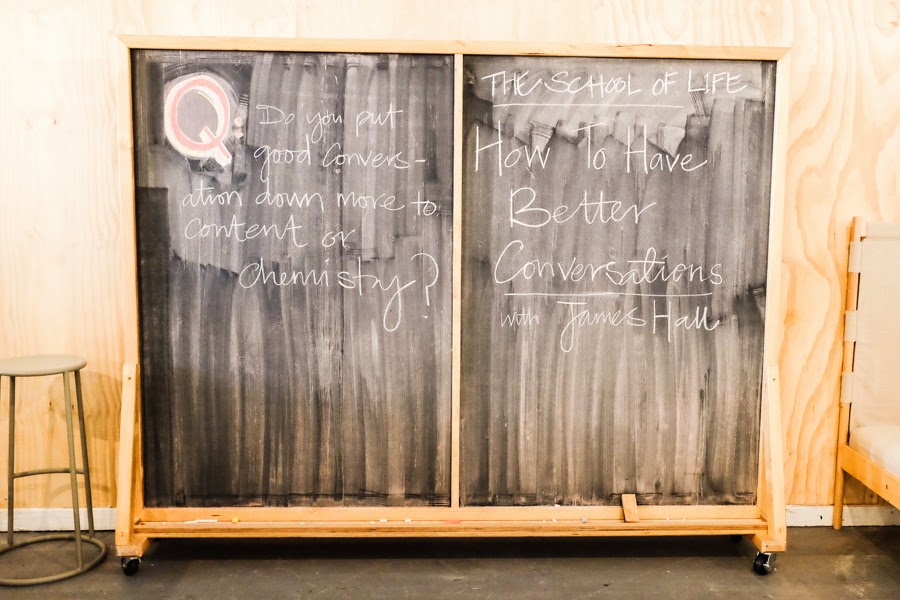 Q
Do you put
good convers-
ation down more to
content or
chemistry?
THE SCHOOL OF LIFE
How To Have
Better
Conversations
with James Hall